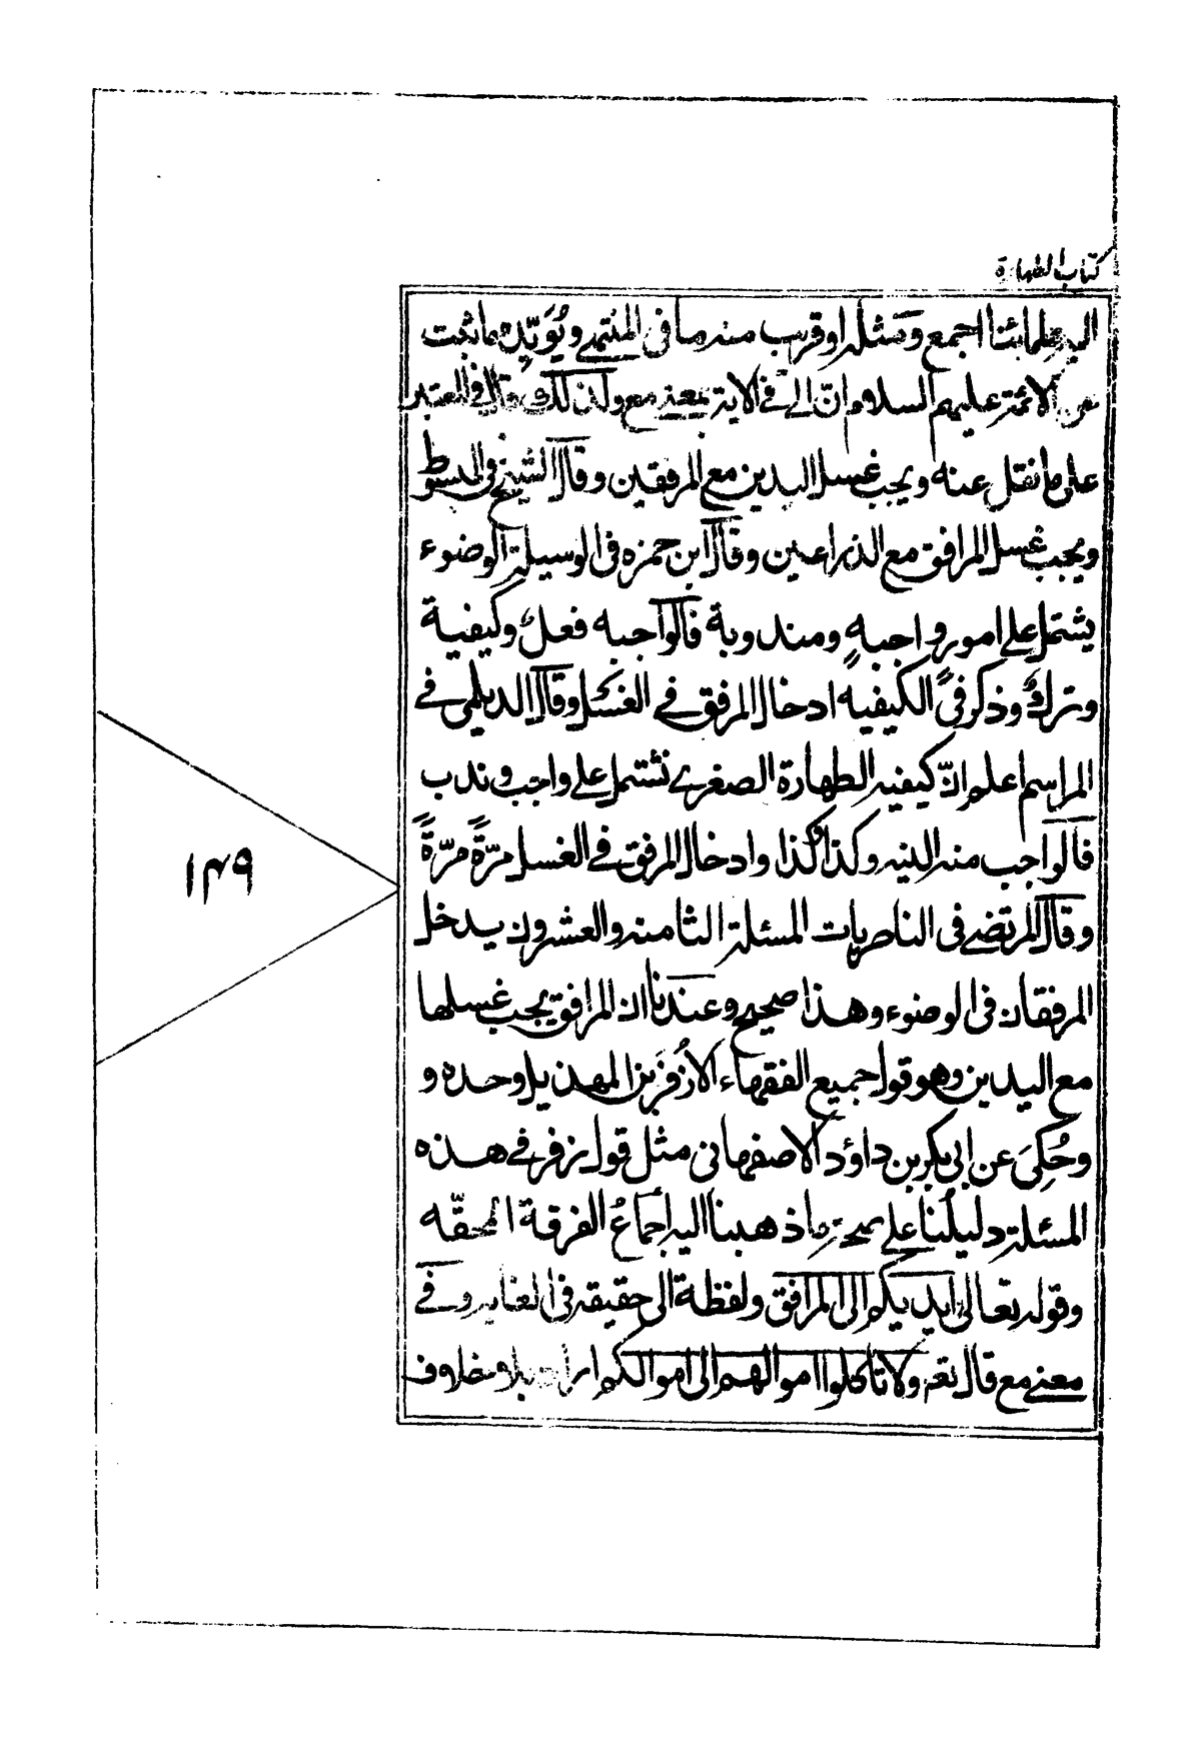 كتاب الطهارة
اليه علمائنا اجمع ومثله او قريب منه ما فى المنتهى ويُؤيّده ما ثبت
عن الائمة عليهم السلام انّ الى فى الاية بمعنى مع ولذلك قال فى المعتبر
على ما نقل عنه ويجب غسل اليدين مع المرفقين وقال الشيخ فى المبسوط
ويجب غسل المرافق مع الذراعين وقال ابن حمزه فى الوسيلة الوضوء
يشتمل على امور واجبهٍ ومندوبة فالواجبه فعلٌ وكيفية
وتركٌ وذكر فى الكيفيه ادخال المرفق فى الغسل وقال الديلمى فى
المراسم اعلم انّ كيفيه الطهارة الصغرى تشتمل على واجب وندب
فالواجب منه النيه وكذا وكذا وادخال المرفق فى الغسل مرّةً مرّةً
وقال المرتضى فى الناصريات المسئلة الثامنه والعشرون يدخل
المرفقان فى الوضوء وهذا صحيح وعندنا ان المرافق يجب غسلها
مع اليدين وهو قول جميع الفقهاء الا زُفَر بن الهذيل وحده و
وحُكِىَ عن ابى بكر بن داؤد الاصفهانى مثل قول زفر فى هذه
المسئلة دليلُنا على صحة ما ذهبنا اليه اجماعُ الفرقة المحقّه
وقوله تعالى ايديكم الى المرافق ولفظة الى حقيقه فى الغايه وفى
معنى مع قال تعه ولا تاكلوا اموالهم الى اموالكم اراد بلا خلاف
١٤٩